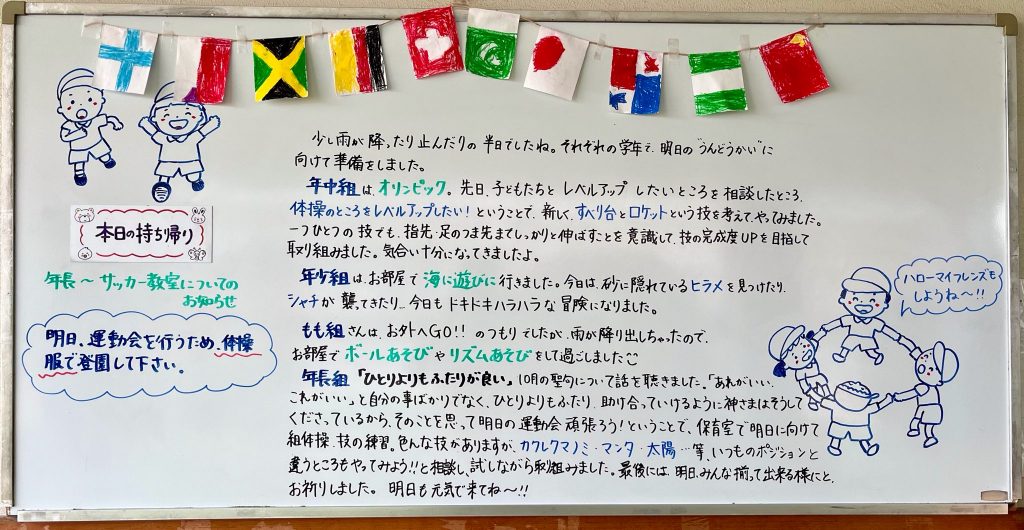 少し雨が降ったり止んだりの半日でしたね。それぞれの学年で、明日の"うんどうかい"に
向けて準備をしました。
年中組は、オリンピック。先日、子どもたちとレベルアップしたいところを相談したところ、
体操のところをレベルアップしたい！ということで、新しく、すべり台とロケットという技を考えて、やってみました。
一つひとつの技でも、指先・足のつま先までしっかりと伸ばすことを意識して、技の完成度UPを目指して
取り組みました。気合い十分になってきましたよ。
年少組は、お部屋で海に遊びに行きました。今日は、砂に隠れているヒラメを見つけたり、
シャチが襲ってきたり…今日もドキドキハラハラな冒険になりました。
もも組さんは、お外へGO!!のつもりでしたが、雨が降り出しちゃったので、
お部屋でボールあそびやリズムあそびをして過ごしました
年長組「ひとりよりもふたりが良い」10月の聖句について話を聴きました。「あれがいい、
これがいい」と自分の事ばかりでなく、ひとりよりもふたり、助け合っていけるように神さまはそうして
くださっているから、そのことを思って明日の運動会頑張ろう！ということで、保育室で明日に向けて
組体操、技の練習。色んな技がありますが、カクレクマノミ・マンタ・太陽…等、いつものポジションと
違うところもやってみよう!!と相談し、試しながら取り組みました。最後には、明日、みんな揃って出来る様にと、
お祈りしました。明日も元気で来てね〜!!
本日の持ち帰り
年長〜サッカー教室についての
お知らせ
明日、運動会を行うため、体操
服で登園して下さい。
ハローマイフレンズも
しようね〜!!